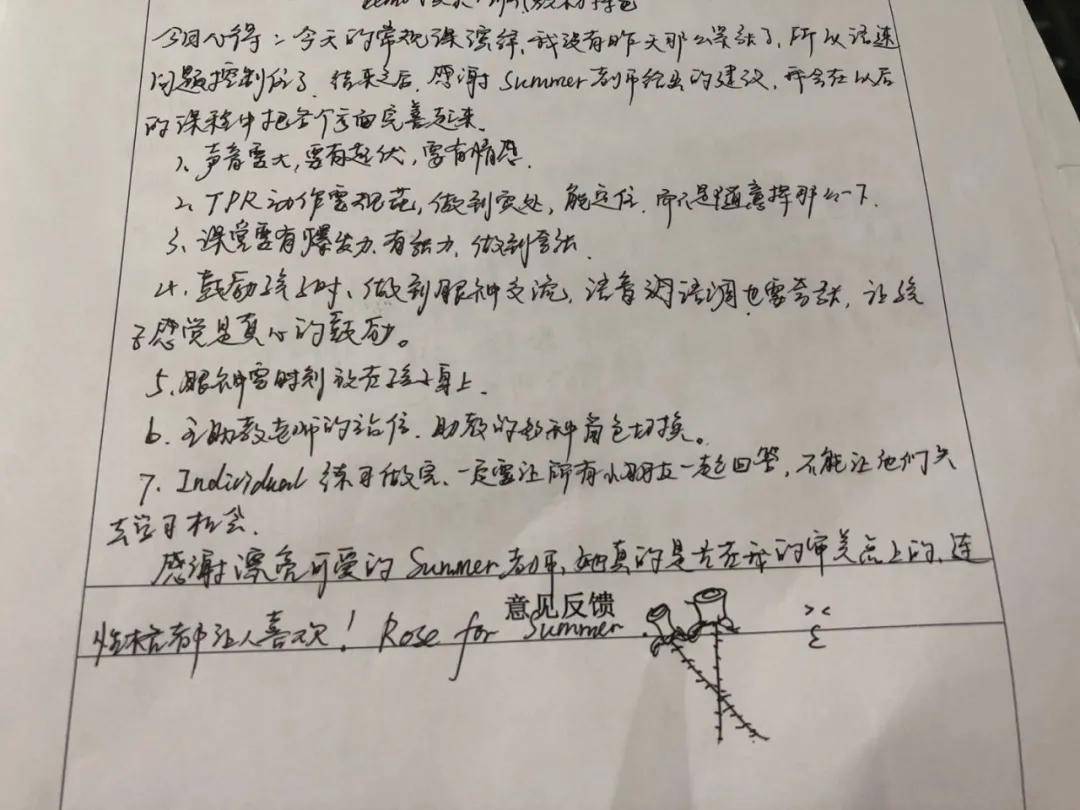 今日心得：今天的常规课演绎，我没有昨天那么紧张了，所以语速
问题控制住了。结束之后，感谢Summer老师给出的建议，我会在以后
的课程中把各个方面完善起来。
1、声音要大，要有起伏，要有情感.
2、TPR动作要规范，做到实处，能定位.而不是随意挥那么一下.
3、课堂要有爆发力.有张力，做到夸张.
4、鼓励孩子时、做到眼神交流，语音语调也要夸张，让孩
子感觉是真心的鼓励。
5、眼神要时刻放在孩子身上.
6、主助教老师的站位.助教的多种角色切换。
7、Individual 练习做完、一定要让所有小朋友一起回答，不能让他们失
去学习机会.
感谢漂亮可爱的Summer老师，她真的是长在我的审美点上的，连
意见反馈
性格都让人喜欢！Rose for Summer.